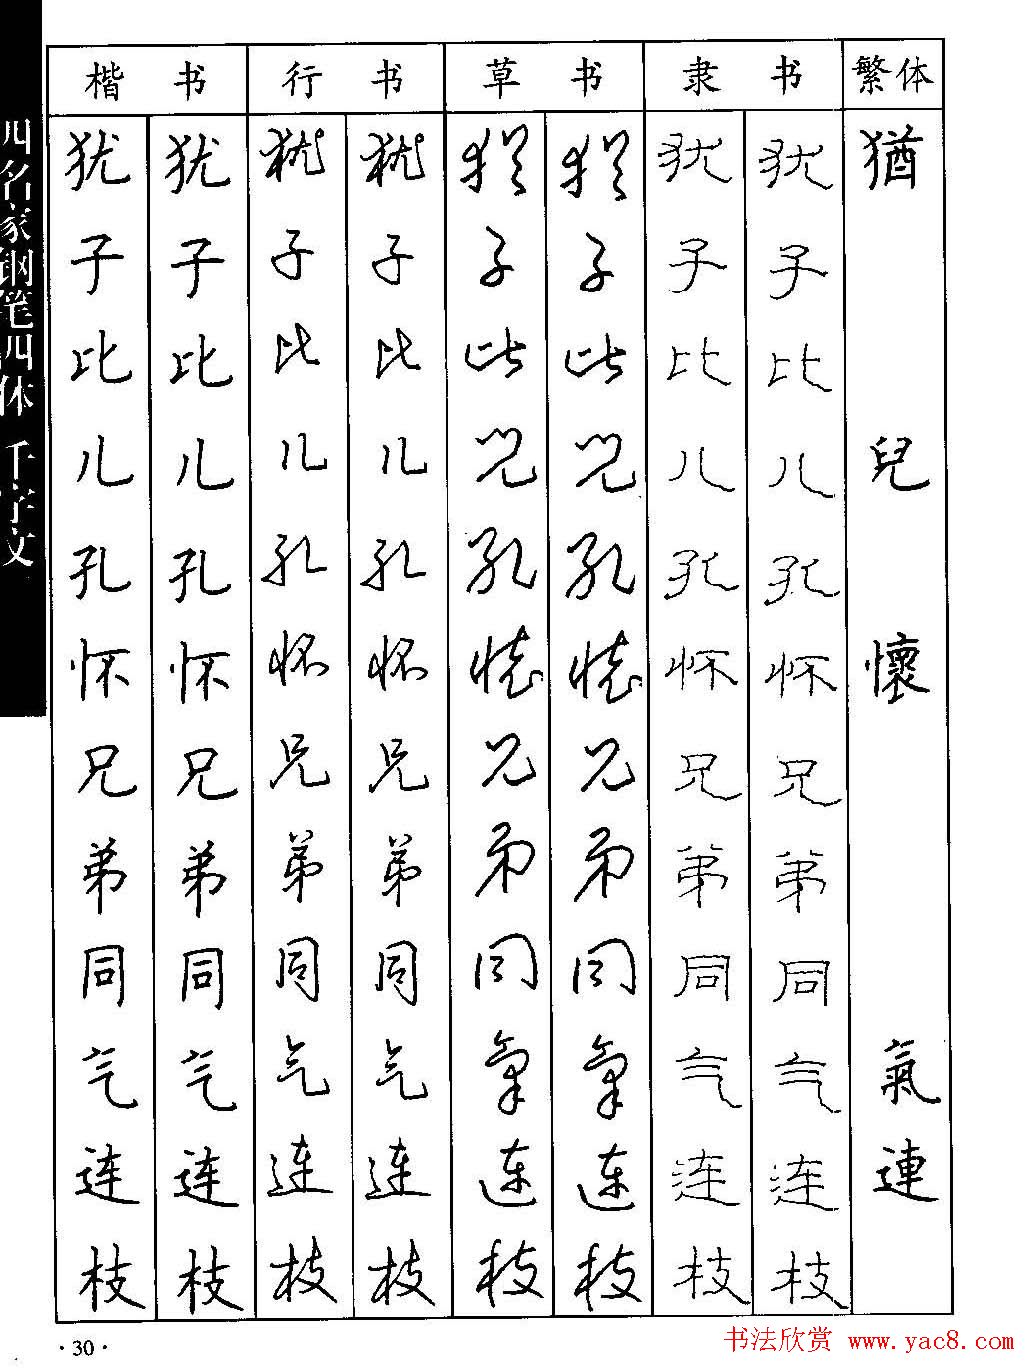 四名家钢笔四体 千字文
楷书 行书 草书 隶书 繁体
犹 犹 犹 犹 犹 犹 犹 犹 猶
子 子 子 子 子 子 子 子
比 比 比 比 比 比 比 比
儿 儿 儿 儿 兒 兒 儿 儿 兒
孔 孔 孔 孔 孔 孔 孔 孔
怀 怀 怀 怀 懷 懷 怀 怀 懷
兄 兄 兄 兄 兄 兄 兄 兄
弟 弟 弟 弟 弟 弟 弟 弟
同 同 同 同 同 同 同 同
气 气 气 气 氣 氣 气 气 氣
连 连 连 连 连 连 连 连 連
枝 枝 枝 枝 枝 枝 枝 枝
·30·
书法欣赏 www.yac8.com